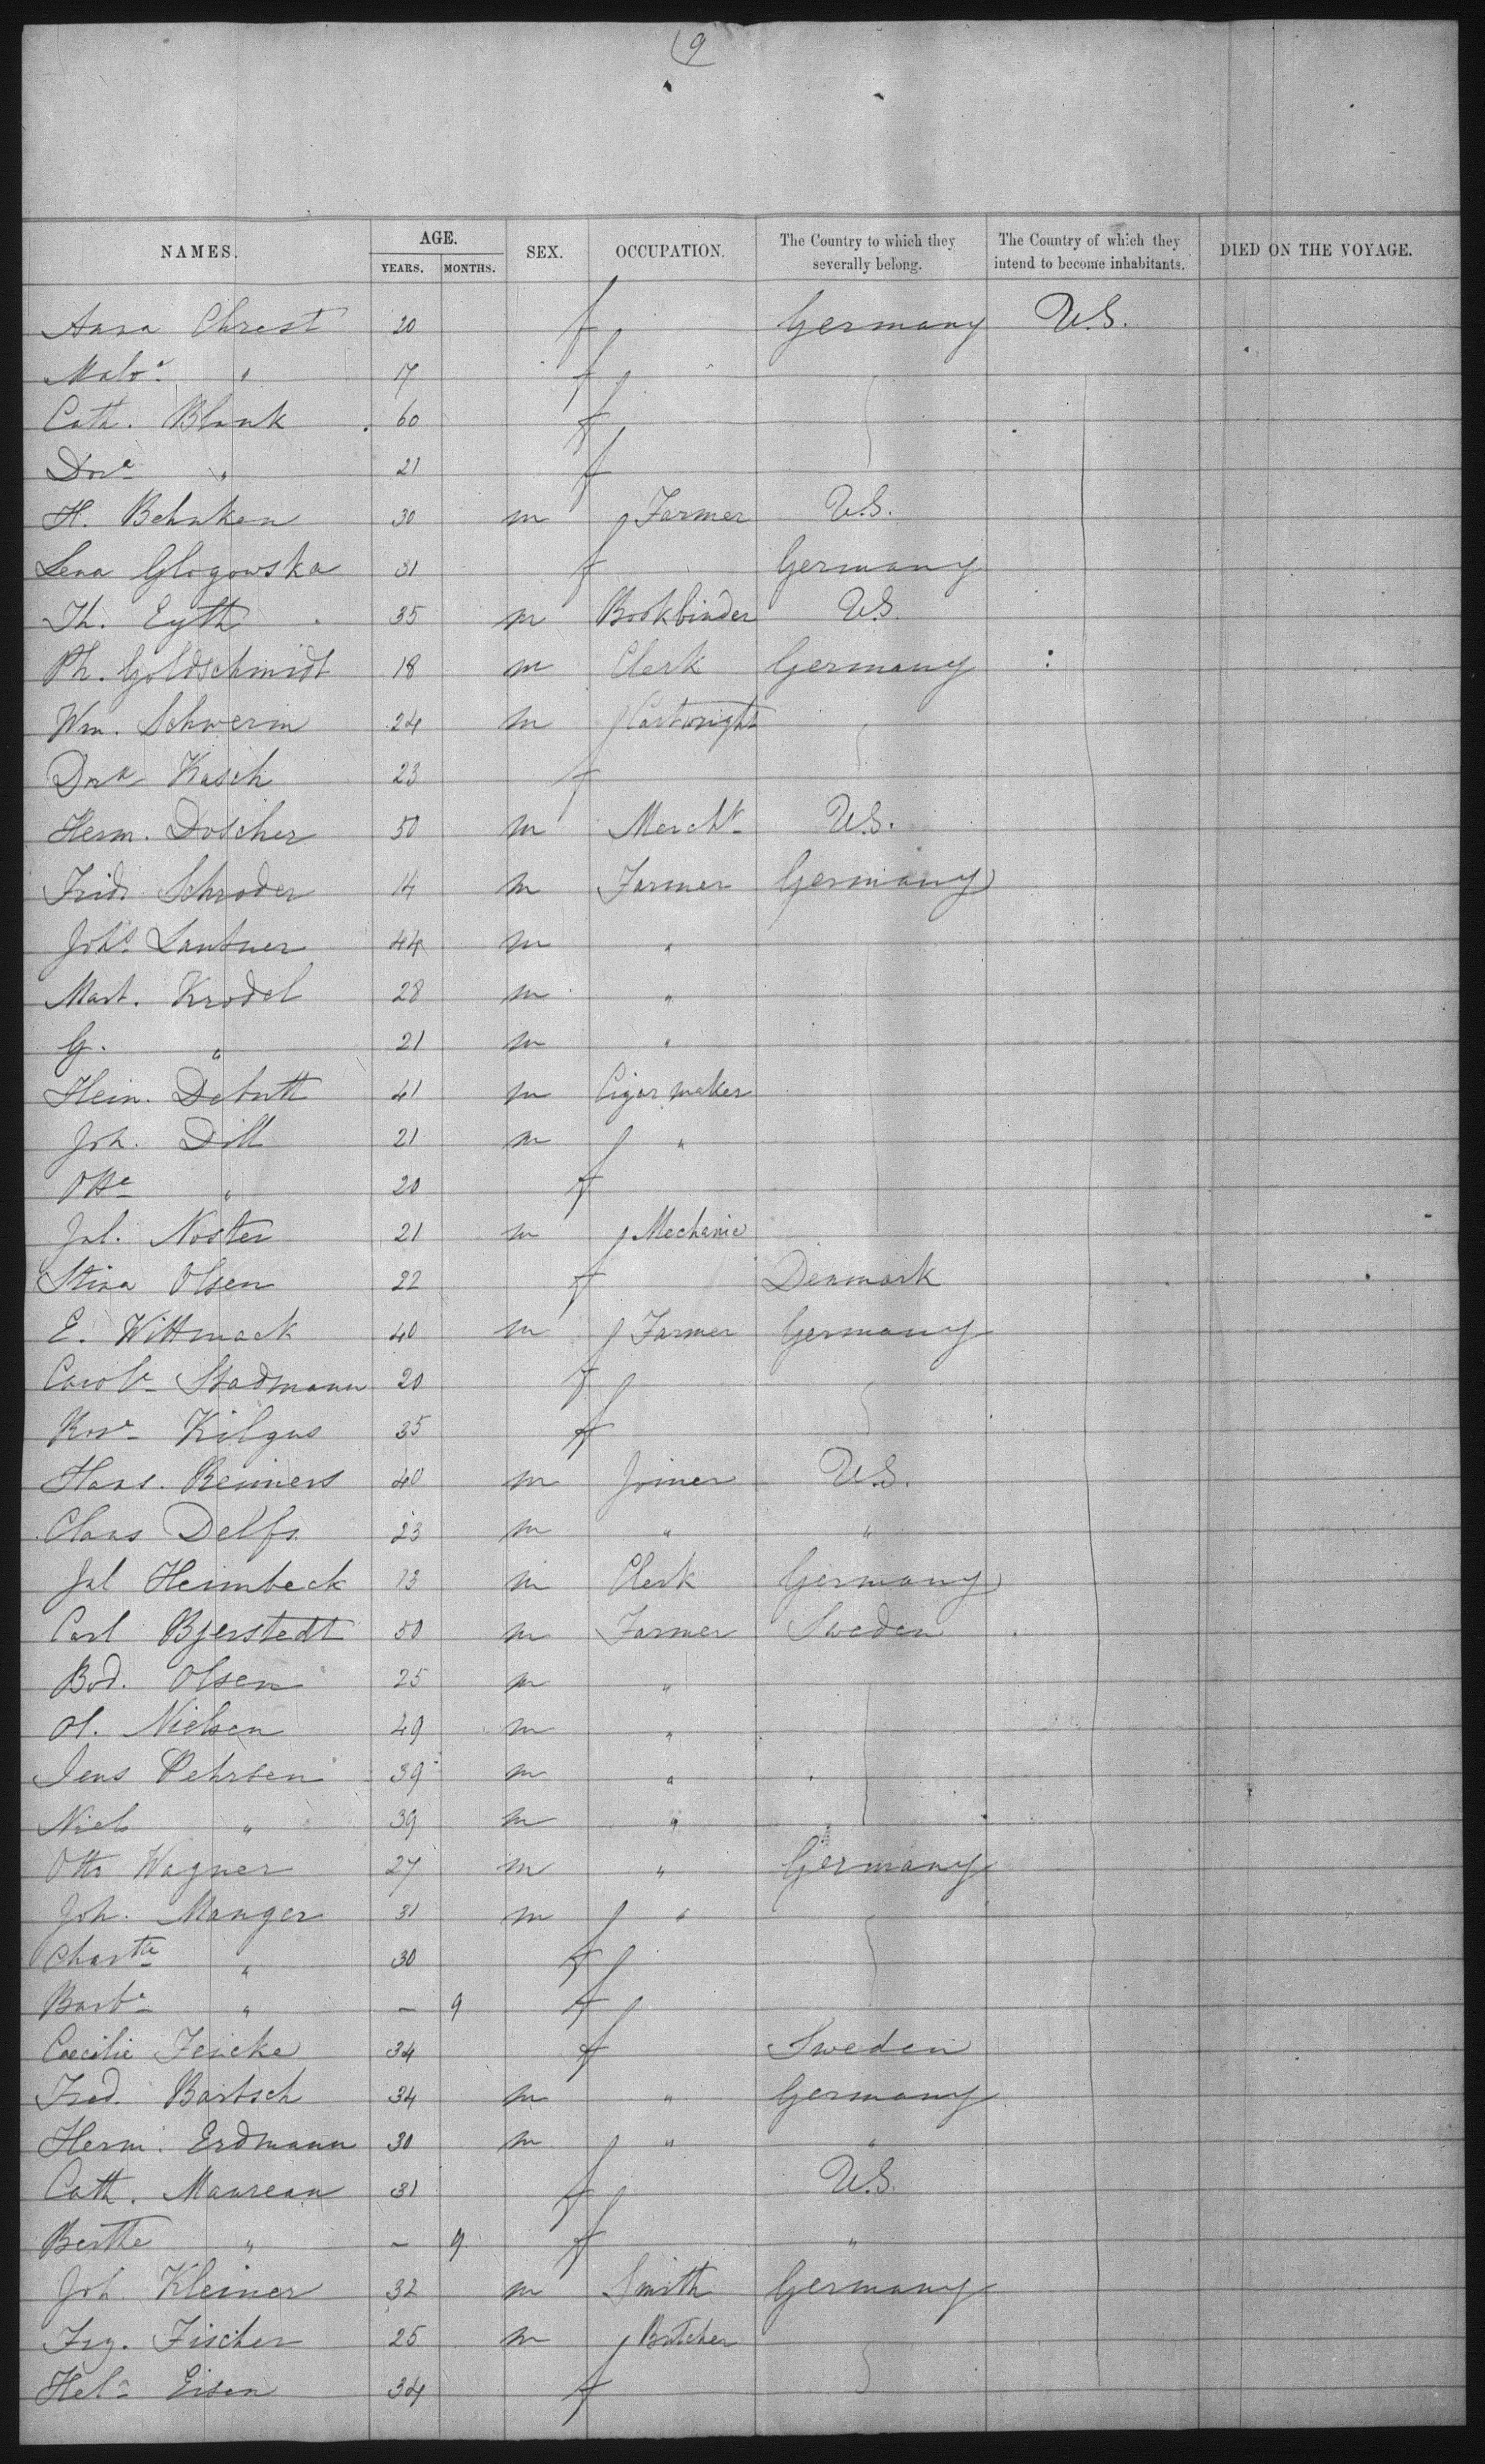 9
NAMES. AGE. SEX. OCCUPATION. The Country to which they severally belong. The Country of which they intend to become inhabitants. DIED ON THE VOYAGE.
YEARS. MONTHS.
Anna Chrest 20 f Germany U.S.
Malv.a " 17 f
Cath. Blank 60 f
Dor.a " 21 f
H. Behnken 30 m Farmer U.S.
Lena Glogowska 31 f Germany
Th. Eyth 35 m Bookbinder U.S.
Ph. Goldschmidt 18 m Clerk Germany
Wm. Schwerin 24 m Cartwright
Dora Kasch 23 f
Herm. Doscher 50 m Mercht U.S.
Fridr Schroder 14 m Farmer Germany
Johs Lantner 44 m "
Mart. Krodel 28 m "
G. " 21 m "
Hein. Debutt 41 m Cigar maker
Joh. Dill 21 m "
Otte " 20 f
Jul. Noster 21 m Mechanic
Stina Olsen 22 f Denmark
E. Wittmack 40 m Farmer Germany
Carole Stadmann 20 f
Rosa Kilgus 35 f
Hans. Reimers 40 m Joiner U.S.
Claus Delfs 23 m " "
Jul Heimbeck 13 m Clerk Germany
Carl Bjerstedt 50 m Farmer Sweden
Bod. Olsen 25 m "
Ol. Nielsen 49 m "
Jens Pehrsen 39 m "
Niels " 39 m "
Otto Wagner 27 m " Germany
Joh. Manger 31 m "
Chartte " 30 f
Barba " – 9 f
Caecilie Jericke 34 f Sweden
Fred. Bartsch 34 m " Germany
Herm. Erdmann 30 m " "
Cath. Maurean 31 f U.S.
Berthe " – 9 f "
Joh Kleiner 32 m Smith Germany
Frz. Fischer 25 m Butcher
Hela Eisen 34 f